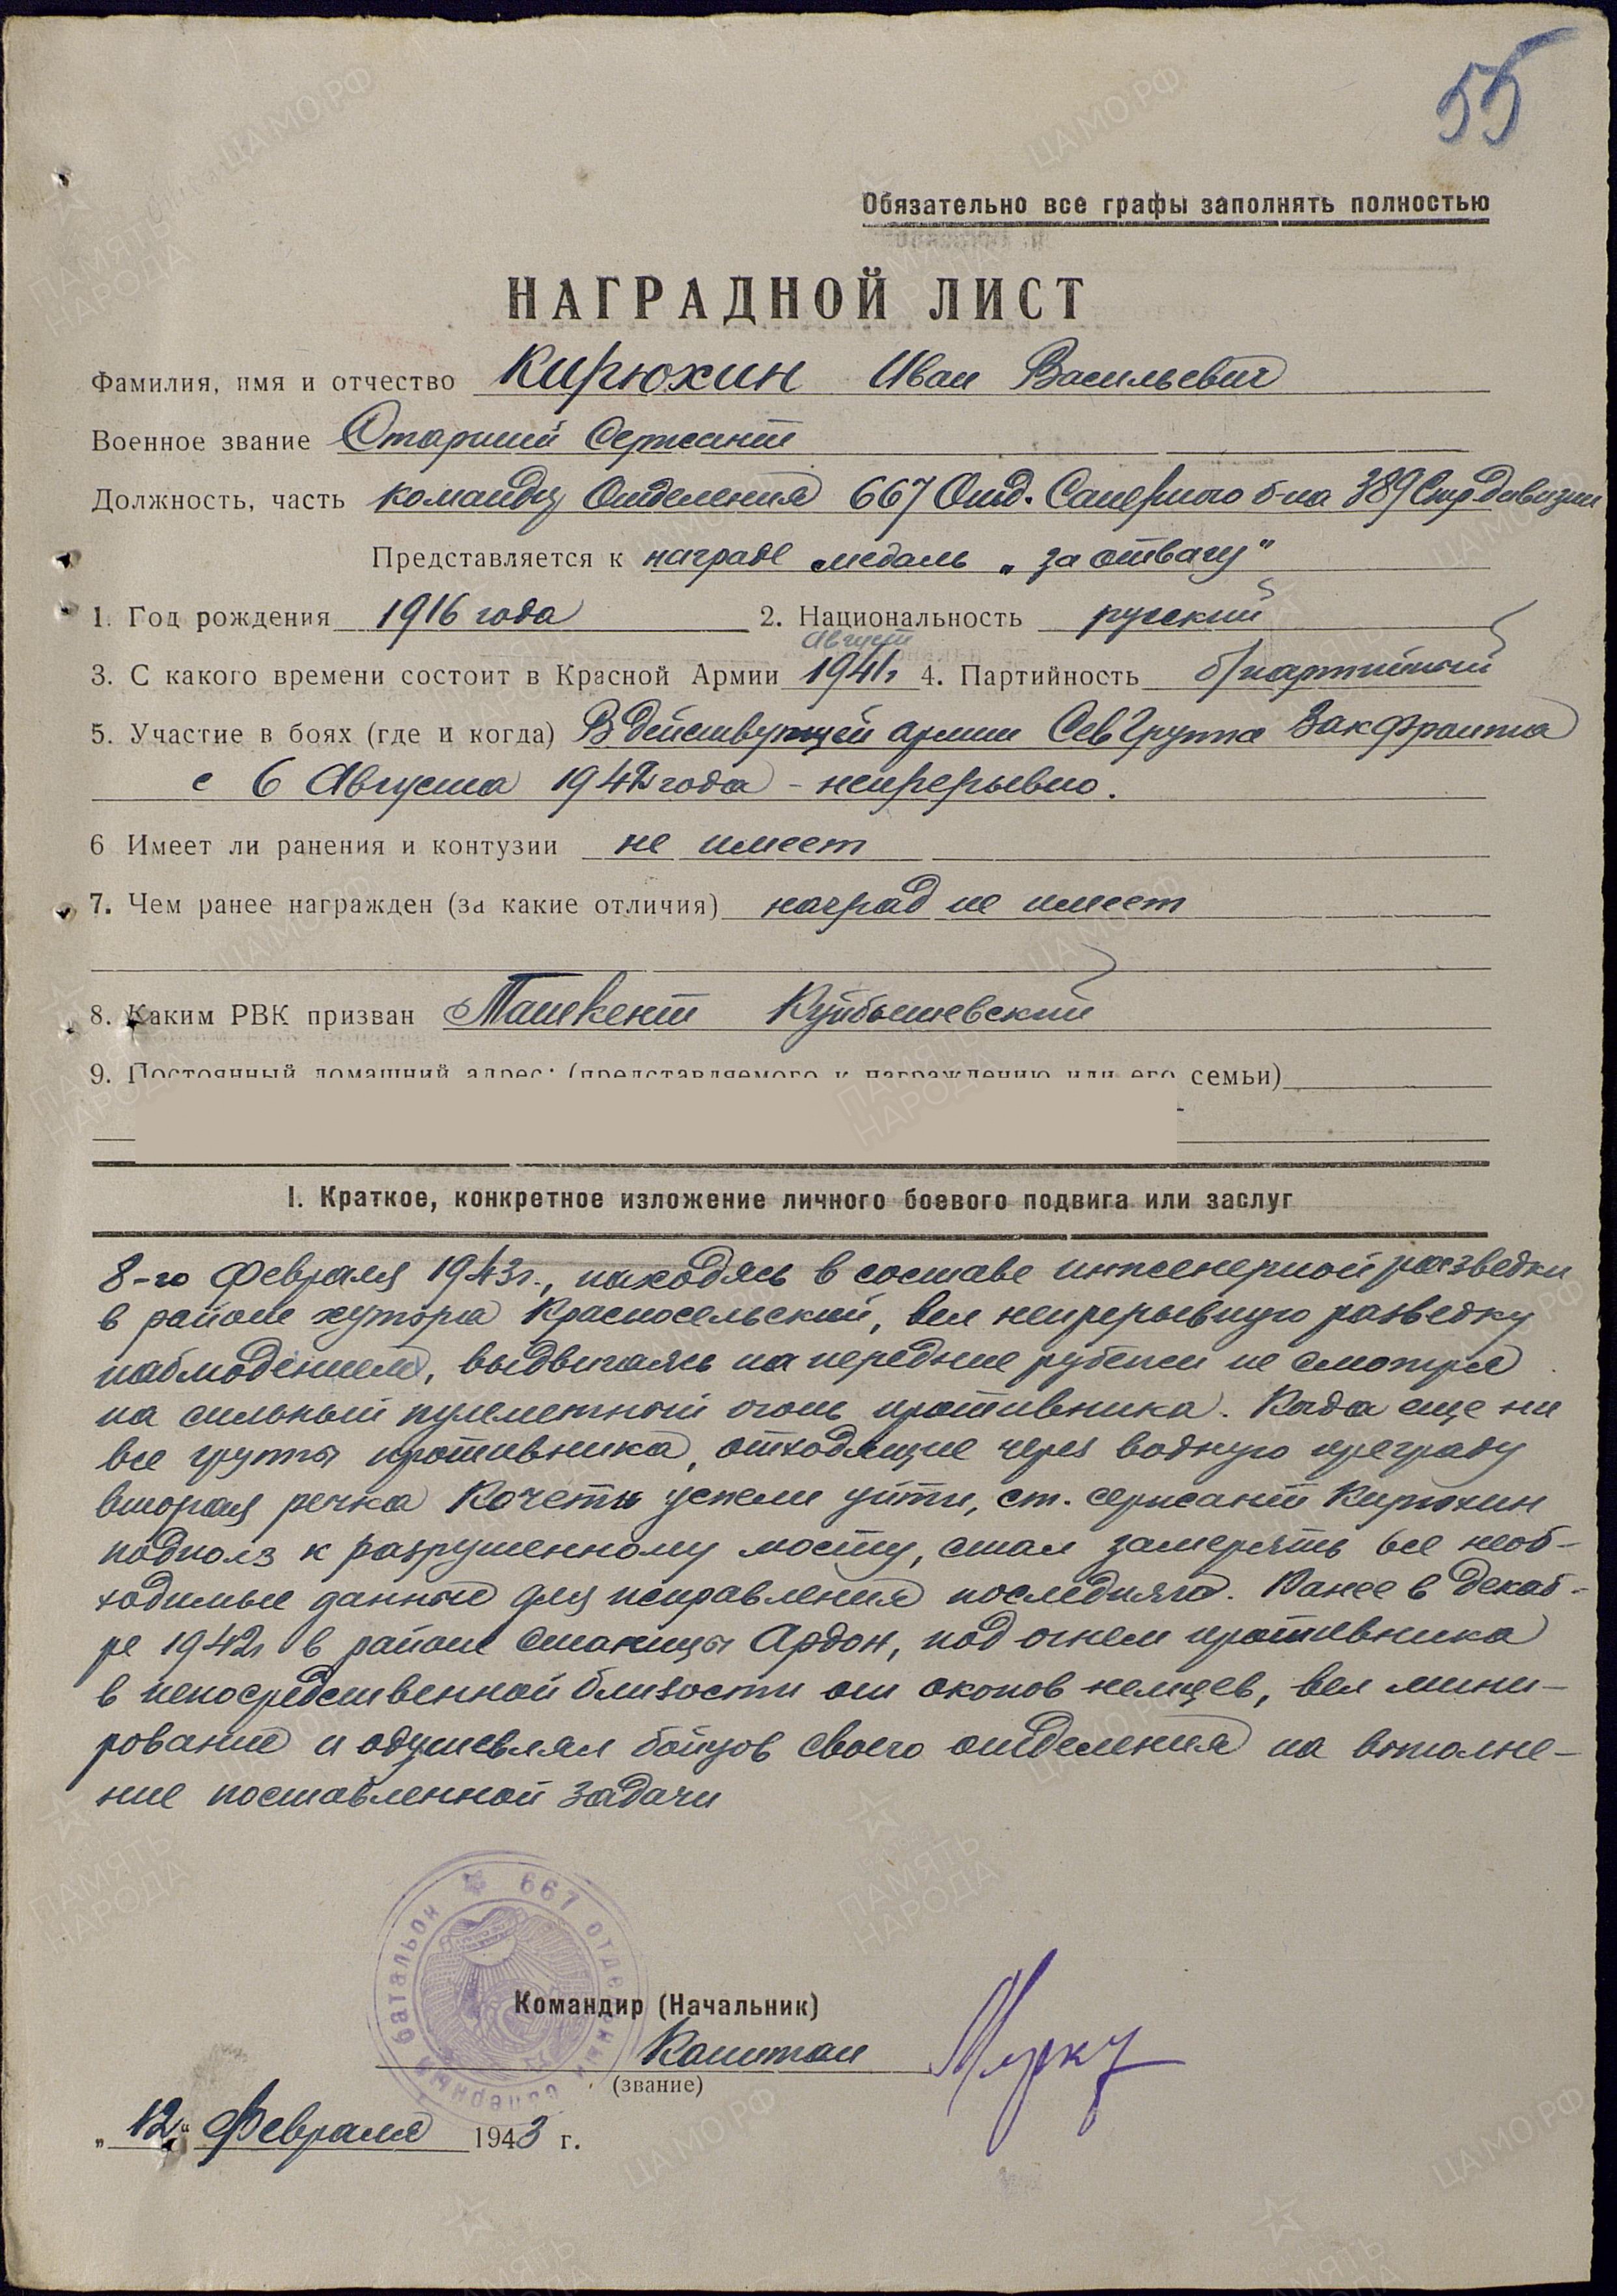 55
Обязательно все графы заполнять полностью
НАГРАДНОЙ ЛИСТ
Фамилия, имя и отчество Кирюхин Иван Васильевич
Военное звание Старший Сержант
Должность, часть командир Отделения 667 Отд. Саперного б-на 389 Стр дивизии
Представляется к награде медаль „за отвагу"
1. Год рождения 1916 года 2. Национальность русский
Август
3. С какого времени состоит в Красной Армии 1941г 4. Партийность б/партийный
5. Участие в боях (где и когда) В действующей армии Сев Группа Закфронта
с 6 Августа 1942 года - непрерывно.
6 Имеет ли ранения и контузии не имеет
7. Чем ранее награжден (за какие отличия) наград не имеет
8. Каким РВК призван Ташкент Куйбышевский
9. Постоянный домашний адрес: (представляемого к награждению или его семьи)
I. Краткое, конкретное изложение личного боевого подвига или заслуг
8-го Февраля 1943г., находясь в составе инженерной разведки
в районе хутора Красносельский, вел непрерывную разведку
наблюдением, выдвигаясь на передние рубежи не смотря
на сильный пулеметный огонь противника. Когда еще ни
все группы противника, отходящие через водную преграду
вторая речка Кочеты успели уйти, ст. сержант Кирюхин
подполз к разрушенному мосту, стал замерять все необ-
ходимые данные для исправления последняго. Ранее в декаб-
ре 1942г в районе станицы Ардон, под огнем противника
в непосредственной близости от окопов немцев, вел мини-
рование и одушевлял бойцов своего отделения на выполне-
ние поставленной задачи
667 отдельный саперный батальон
Командир (Начальник)
Капитан
(звание)
„12" Февраля 1943 г.
ПАМЯТЬ НАРОДА
ЦАМО РФ